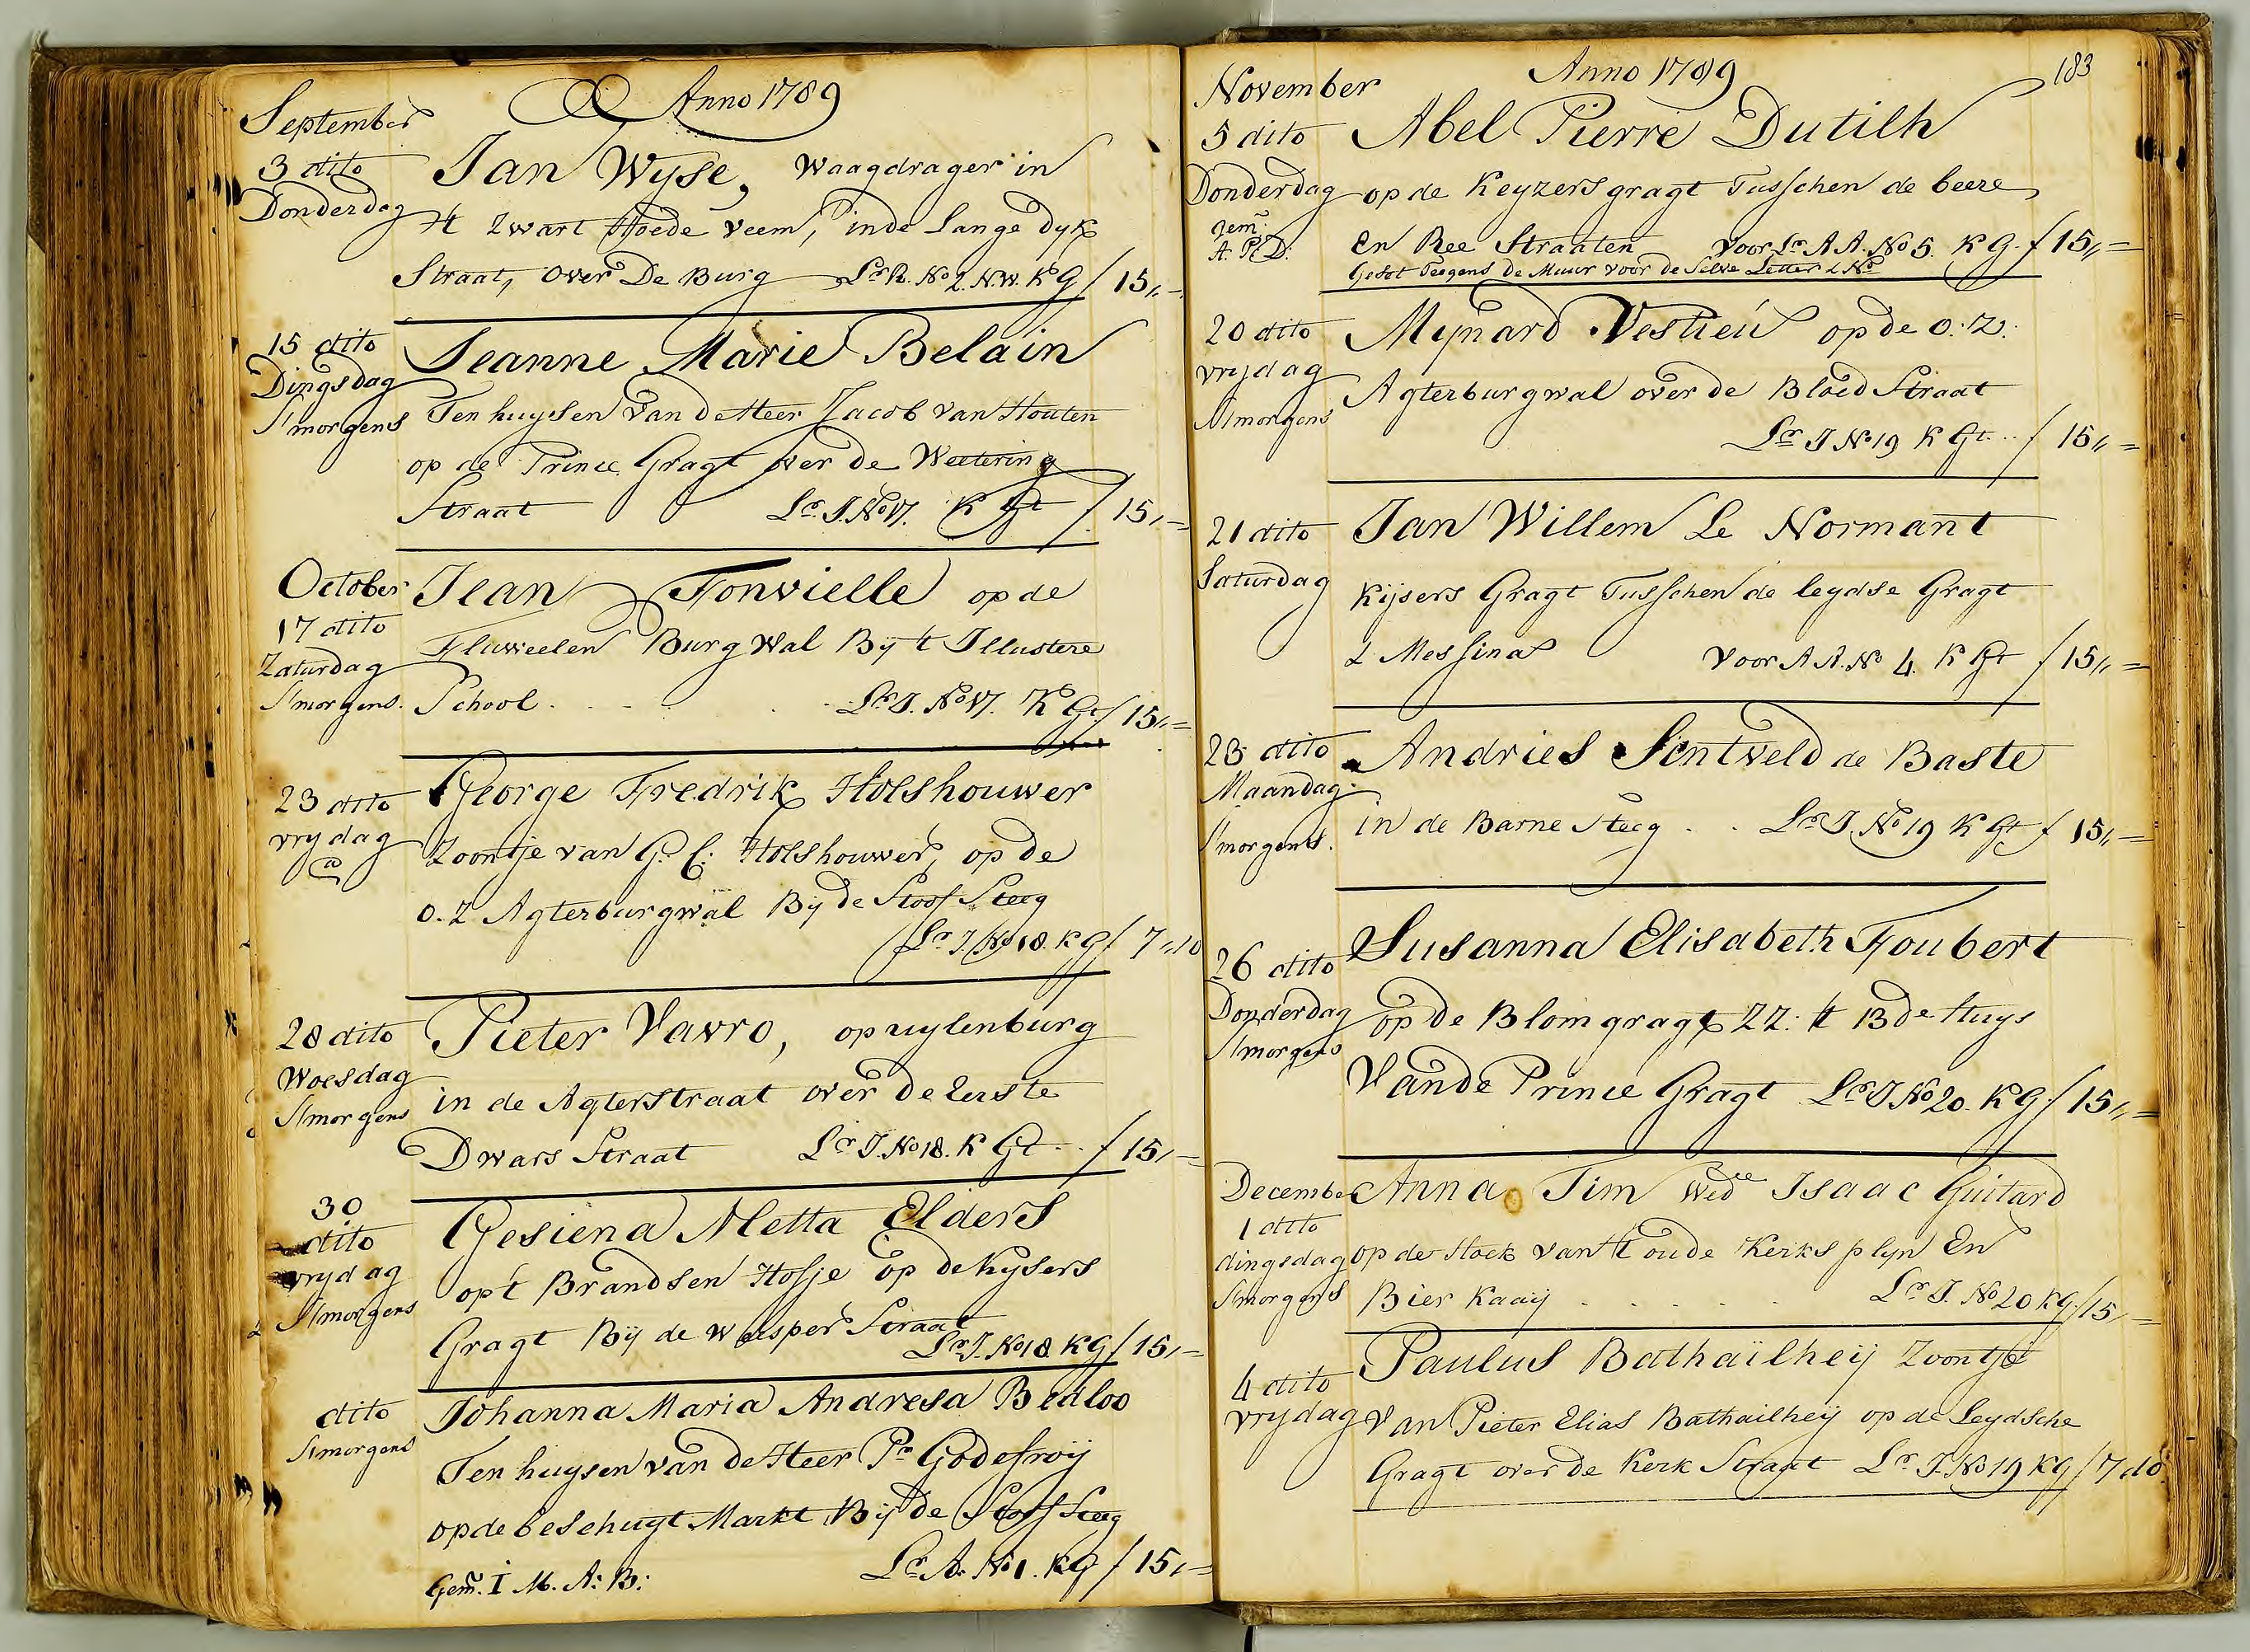 Anno 1789
September
3 dito
Donderdag
Jan Wyse, Waagdrager in
't Zwart Hoede Veem, inde Lange dyk
Straat, over De Burg Lr. R. No 2. N.W. KG f 15,,=
15 dito
Dingsdag
Smorgens
Jeanne Marie Belain
Ten huysen van de Heer Jacob van Houten
op de Prince Gragt over de Weetering
Straat Lr. J. No 17. K Gt f 15,,=
October
17 dito
Zaturdag
Smorgens.
Jean Fonvielle op de
Fluweelen Burg Wal Bij 't Illustere
School . . . Lr. J. No 17. K Gt f 15,,=
23 dito
vrydag
George Fredrik Holshouwer
Zoontje van G. C. Holshouwer, op de
O. Z Agterburgwal Bij de Stoof Steeg
Lr. J. No 18. KG f 7,,10
28 dito
Woesdag
Smorgens
Pieter Vavro, op uylenburg
in de Agterstraat over de Eerste
Dwars Straat Lr. J. No 18. K Gt . . f 15,,=
30
dito
vrydag
Smorgens
Gesiena Metta Elders
op 't Brandsen Hofje op de Kysers
Gragt Bij de Weesper Straat
Lr. J. No 18 KG f 15,,=
dito
Smorgens
Johanna Maria Andresa Bedloo
Ten huysen van de Heer Pr Godefroij
op de beschuyt Markt Bij de Stoof Steeg
Gem. I M. A: B: Lr. A. No 1. KG f 15,,=
Anno 1789 183
November
5 dito
Donderdag
Gem:
A. P. D:
Abel Pierre Dutilh
op de Keyzers gragt Tusschen de beere
en Ree Straaten Voor Lr. A A. No 5. K G. f 15,,=
Gesot Teegens de Muur voor de Selve Letter & No
20 dito
vrijdag
Smorgens
Mynard Vestieu op de O: Z:
Agterburgwal over de Bloed Straat
Lr J No 19 K Gt . . f 15,,=
21 dito
Saturdag
Jan Willem Le Normant
Kijsers Gragt Tusschen de leydse Gragt
& Messina Voor A A. No 4. K Gt f 15,,=
23 dito
Maandag
Smorgens.
Andries Sentveld de Baste
in de Barne Steeg . . Lr. J. No 19 K Gt f 15,,=
26 dito
Donderdag
Smorgens
Susanna Elisabeth Foubert
op de Blom gragt ZZ: 't 13de Huys
Van de Prince Gragt Lr. J No 20. KG f 15,,=
December
1 dito
dingsdag
Smorgens
Anna Tim Wede Isaac Guitard
op de Hoek van 't oude Kerks plyn En
Bier Kaaij . . . . . Lr J. No 20 KG f 15,,=
4 dito
vrydag
Paulus Bathailheij Zoontje
van Pieter Elias Bathailheij op de Leydsche
Gragt over de Kerk Straat Lr. J. No 19 KG f 7,10